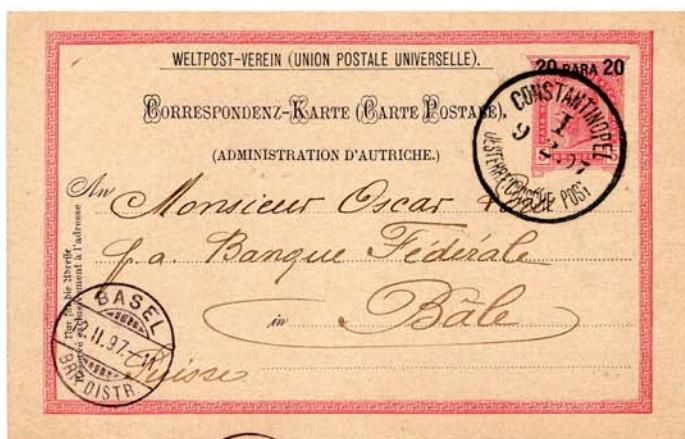 WELTPOST-VEREIN (UNION POSTALE UNIVERSELLE).
20 PARA 20
CORRESPONDENZ-KARTE (CARTE POSTALE).
(ADMINISTRATION D'AUTRICHE.)
CONSTANTINOPEL
I
9
OESTERREICHISCHE POST
An Monsieur Oscar
p. a. Banque Fédérale
in Bâle
Suisse
Nur für die Adresse
Réservé exclusivement à l'adresse
BASEL
2.II.97.-11
BRF. DISTR.